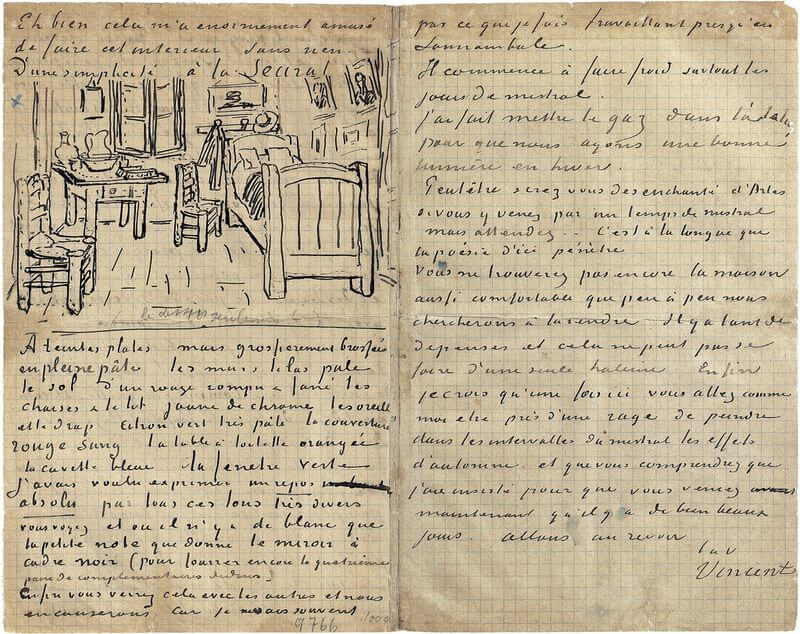 Eh bien cela m'a enormement amusé
de faire cet interieur sans rien.
D'une simplicité à la Seurat
A teintes plates mais grossierement brossées
en pleine pâte les murs lilas pale
le sol d'un rouge rompu & fané les
chaises & le lit jaune de chrome les oreillers
et le drap citron vert très pâle la couverture
rouge sang la table à toilette orangée
la cuvette bleue la fenetre verte
J'avais voulu exprimer un repos
absolu par tous ces tons très divers
vous voyez et où il n'y a de blanc que
la petite note que donne le miroir à
cadre noir (pour fourrer encore la quatrième
paire de complementaires dedans)
Enfin vous verrez cela avec les autres et nous
en causerons car je ne sais souvent
9766
1000
pas ce que je fais travaillant presqu'en
somnambule.
Il commence à faire froid surtout les
jours de mistral.
J'ai fait mettre le gaz dans l'atelier
pour que nous ayons une bonne
lumière en hiver.
Peutêtre serez vous desenchanté d'Arles
si vous y venez par un temps de mistral
mais attendez.. C'est à la longue que
la poésie d'ici pénètre
Vous ne trouverez pas encore la maison
aussi comfortable que peu à peu nous
chercherons à la rendre Il y a tant de
depenses et cela ne peut pas se
faire d'une seule haleine Enfin
je crois qu'une fois ici vous allez comme
moi etre pris d'une rage de peindre
dans les intervalles du mistral les effets
d'automne. et que vous comprendrez que
j'aie insisté pour que vous veniez
maintenant qu'il y a de bien beaux
jours. allons au revoir
t. à v
Vincent